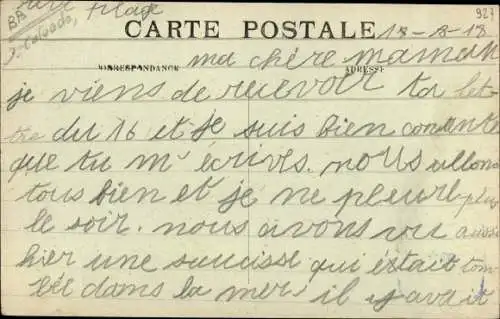 927
BA
Plage
J. Calvados,
CARTE POSTALE
18-8-18
CORRESPONDANCE
ADRESSE
ma chère maman
je viens de recevoir ta let
tre du 16 et je suis bien contente
que tu m'écrives. nous allons
tous bien et je ne pleure plus
le soir. nous avons vu aussi
hier une saucisse qui était tom
bée dans la mer, il y avait